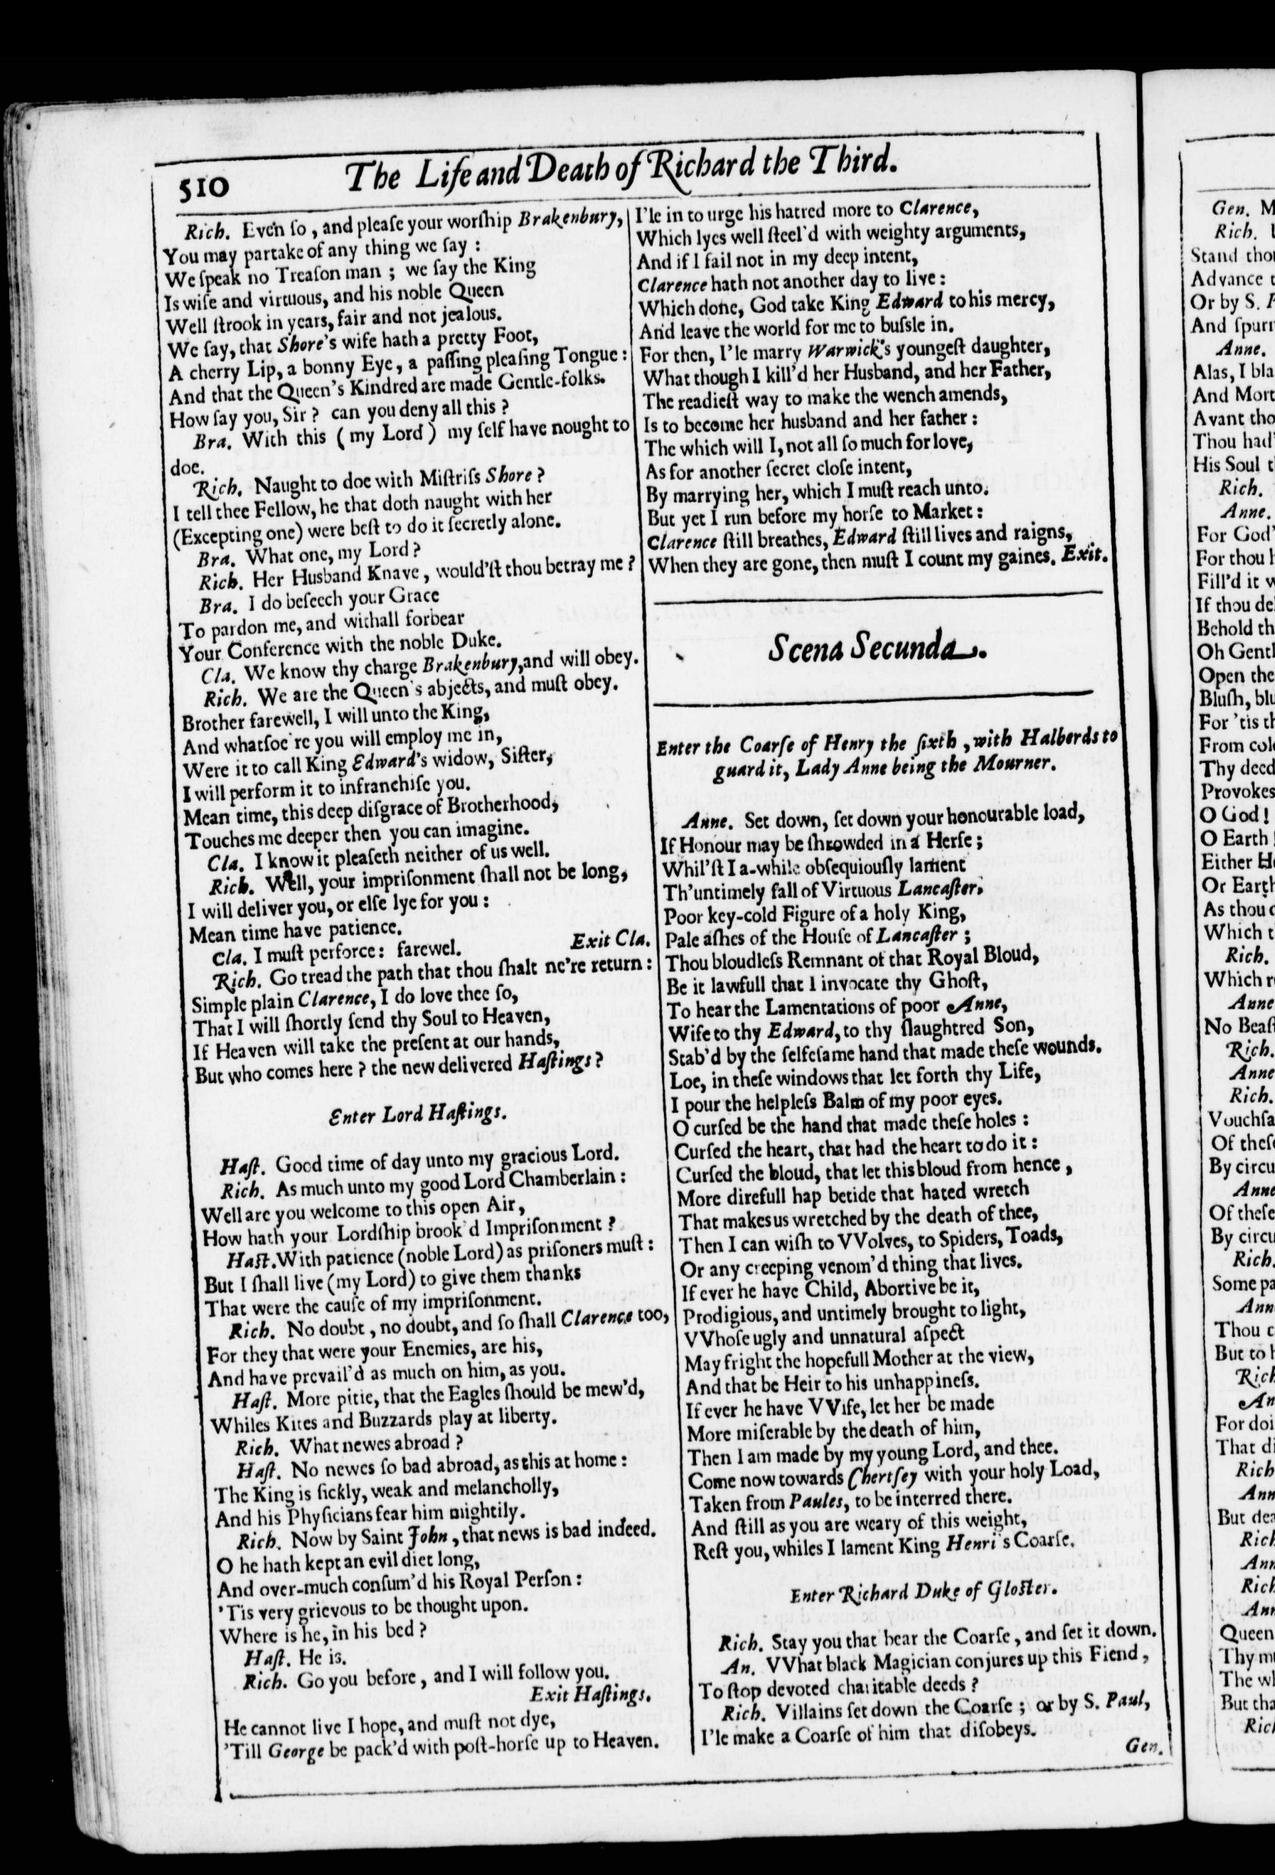 510
The Life and Death of Richard the Third.
Rich. Even ſo, and pleaſe your worſhip Brakenbury,
You may partake of any thing we ſay :
We ſpeak no Treaſon man ; we ſay the King
Is wiſe and virtuous, and his noble Queen
Well ſtrook in years, fair and not jealous.
We ſay, that Shore's wife hath a pretty Foot,
A cherry Lip, a bonny Eye, a paſſing pleaſing Tongue :
And that the Queen's Kindred are made Gentle-folks.
How ſay you, Sir ? can you deny all this ?
Bra. With this ( my Lord ) my ſelf have nought to
doe.
Rich. Naught to doe with Miſtriſs Shore ?
I tell thee Fellow, he that doth naught with her
(Excepting one) were beſt to do it ſecretly alone.
Bra. What one, my Lord ?
Rich. Her Husband Knave, would'ſt thou betray me ?
Bra. I do beſeech your Grace
To pardon me, and withall forbear
Your Conference with the noble Duke.
Cla. We know thy charge Brakenbury, and will obey.
Rich. We are the Queen's abjects, and muſt obey.
Brother farewell, I will unto the King,
And whatſoe're you will employ me in,
Were it to call King Edward's widow, Siſter,
I will perform it to infranchiſe you.
Mean time, this deep diſgrace of Brotherhood,
Touches me deeper then you can imagine.
Cla. I know it pleaſeth neither of us well.
Rich. Well, your impriſonment ſhall not be long,
I will deliver you, or elſe lye for you :
Mean time have patience.
Cla. I muſt perforce: farewel. Exit Cla.
Rich. Go tread the path that thou ſhalt ne're return :
Simple plain Clarence, I do love thee ſo,
That I will ſhortly ſend thy Soul to Heaven,
If Heaven will take the preſent at our hands,
But who comes here ? the new delivered Haſtings ?
Enter Lord Haſtings.
Haſt. Good time of day unto my gracious Lord.
Rich. As much unto my good Lord Chamberlain :
Well are you welcome to this open Air,
How hath your Lordſhip brook'd Impriſonment ?
Haſt. With patience (noble Lord) as priſoners muſt :
But I ſhall live (my Lord) to give them thanks
That were the cauſe of my impriſonment.
Rich. No doubt, no doubt, and ſo ſhall Clarence too,
For they that were your Enemies, are his,
And have prevail'd as much on him, as you.
Haſt. More pitie, that the Eagles ſhould be mew'd,
Whiles Kites and Buzzards play at liberty.
Rich. What newes abroad ?
Haſt. No newes ſo bad abroad, as this at home :
The King is ſickly, weak and melancholly,
And his Phyſicians fear him mightily.
Rich. Now by Saint John, that news is bad indeed.
O he hath kept an evil diet long,
And over-much conſum'd his Royal Perſon :
'Tis very grievous to be thought upon.
Where is he, in his bed ?
Haſt. He is.
Rich. Go you before, and I will follow you.
Exit Haſtings.
He cannot live I hope, and muſt not dye,
'Till George be pack'd with poſt-horſe up to Heaven.
I'le in to urge his hatred more to Clarence,
Which lyes well ſteel'd with weighty arguments,
And if I fail not in my deep intent,
Clarence hath not another day to live :
Which done, God take King Edward to his mercy,
And leave the world for me to buſsle in.
For then, I'le marry Warwick's youngeſt daughter,
What though I kill'd her Husband, and her Father,
The readieſt way to make the wench amends,
Is to become her husband and her father :
The which will I, not all ſo much for love,
As for another ſecret cloſe intent,
By marrying her, which I muſt reach unto.
But yet I run before my horſe to Market :
Clarence ſtill breathes, Edward ſtill lives and raigns,
When they are gone, then muſt I count my gaines. Exit.
Scena Secunda.
Enter the Coarſe of Henry the ſixth, with Halberds to
guard it, Lady Anne being the Mourner.
Anne. Set down, ſet down your honourable load,
If Honour may be ſhrowded in a Herſe ;
Whil'ſt I a-while obſequiouſly lament
Th'untimely fall of Virtuous Lancaſter.
Poor key-cold Figure of a holy King,
Pale aſhes of the Houſe of Lancaſter ;
Thou bloudleſs Remnant of that Royal Bloud,
Be it lawfull that I invocate thy Ghoſt,
To hear the Lamentations of poor Anne,
Wife to thy Edward, to thy ſlaughtred Son,
Stab'd by the ſelfeſame hand that made theſe wounds.
Loe, in theſe windows that let forth thy Life,
I pour the helpleſs Balm of my poor eyes.
O curſed be the hand that made theſe holes :
Curſed the heart, that had the heart to do it :
Curſed the bloud, that let this bloud from hence,
More direfull hap betide that hated wretch
That makes us wretched by the death of thee,
Then I can wiſh to VVolves, to Spiders, Toads,
Or any creeping venom'd thing that lives.
If ever he have Child, Abortive be it,
Prodigious, and untimely brought to light,
VVhoſe ugly and unnatural aſpect
May fright the hopefull Mother at the view,
And that be Heir to his unhappineſs.
If ever he have VVife, let her be made
More miſerable by the death of him,
Then I am made by my young Lord, and thee.
Come now towards Chertſey with your holy Load,
Taken from Paules, to be interred there.
And ſtill as you are weary of this weight,
Reſt you, whiles I lament King Henri's Coarſe.
Enter Richard Duke of Gloſter.
Rich. Stay you that bear the Coarſe, and ſet it down.
An. VVhat black Magician conjures up this Fiend,
To ſtop devoted charitable deeds ?
Rich. Villains ſet down the Coarſe ; or by S. Paul,
I'le make a Coarſe of him that diſobeys.
Gen.
Gen. M
Rich.
Stand thou
Advance
Or by S.
And ſpurn
Anne.
Alas, I bla
And Mort
Avant tho
Thou had'
His Soul t
Rich.
Anne.
For God'
For thou h
Fill'd it w
If thou de
Behold th
Oh Gentl
Open the
Bluſh, blu
For 'tis th
From cold
Thy deed
Provokes
O God !
O Earth
Either He
Or Earth
As thou d
Which t
Rich.
Which r
Anne
No Beaſt
Rich.
Anne
Rich.
Vouchſa
Of theſe
By circu
Anne
Of theſe
By circu
Rich.
Some pa
Ann
Thou c
But to h
Rich
An
For doi
That di
Rich
Ann
But dea
Rich
Ann
Rich
Ann
Queen
Thy mu
The wh
But tha
Rich